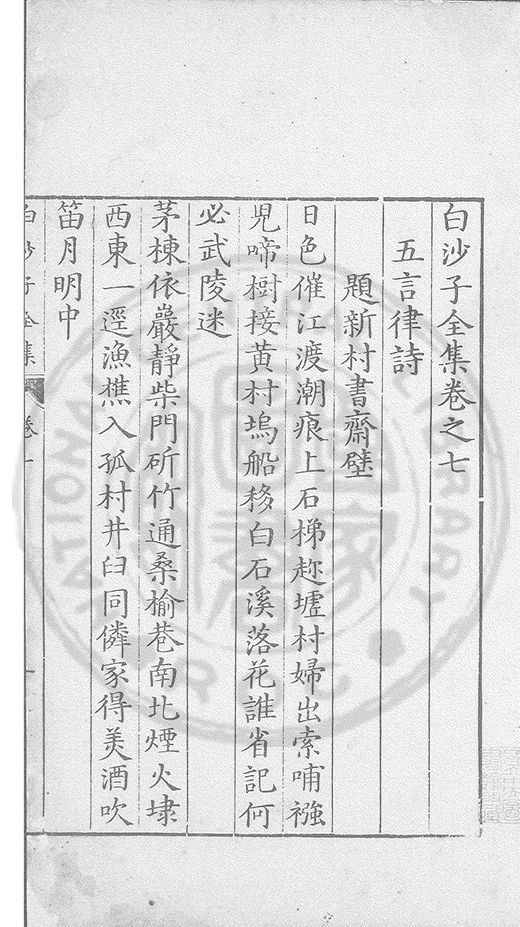 白沙子全集卷之七
五言律詩
題新村書齋壁
日色催江渡潮痕上石梯趂墟村婦出索哺襁
兒啼樹接黃村塢船移白石溪落花誰省記何
必武陵迷
茅棟依巖靜柴門斫竹通桑榆巷南北煙火埭
西東一逕漁樵入孤村井臼同鄰家得美酒吹
笛月明中
白沙子全集 卷